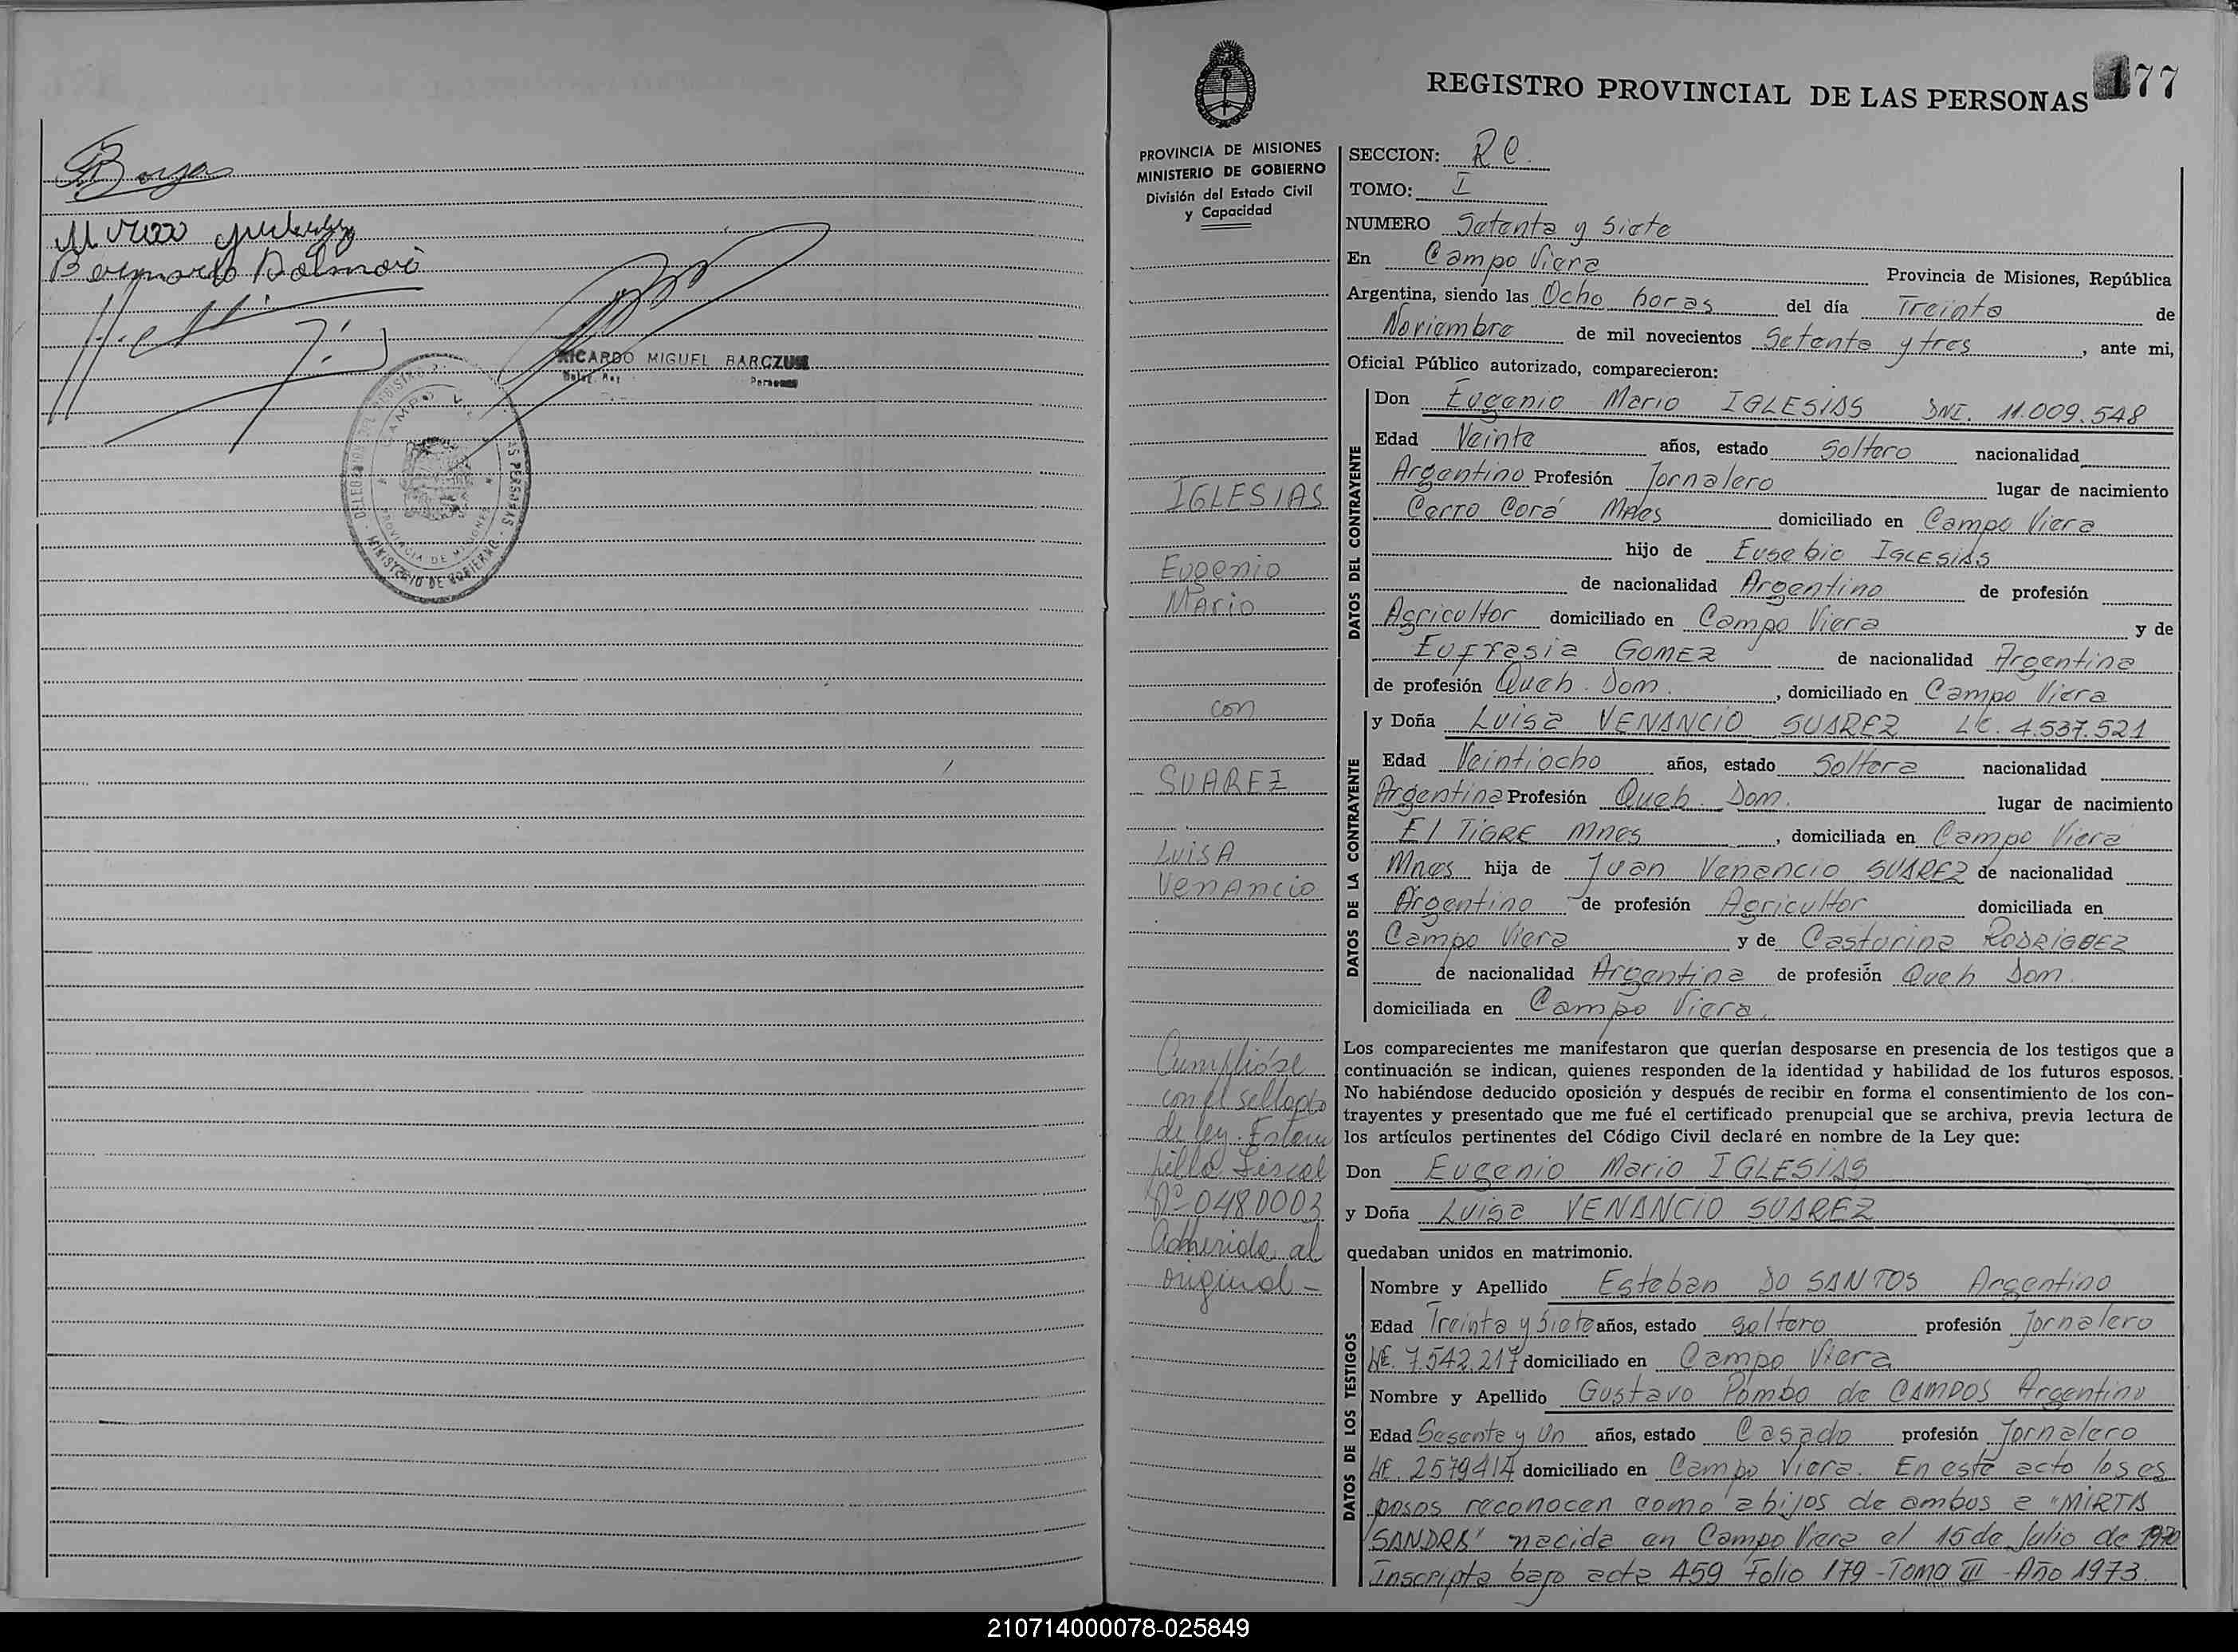 Borja
Bernardo Dalmaro
RICARDO MIGUEL BARCZUK
CAMPO
PROVINCIA DE MISIONES
MINISTERIO DE GOBIERNO
177
REGISTRO PROVINCIAL DE LAS PERSONAS
PROVINCIA DE MISIONES
MINISTERIO DE GOBIERNO
División del Estado Civil
y Capacidad
IGLESIAS
Eugenio
Mario
con
SUAREZ
LuisA
VenAncio
Cumplióse
con el sellado
de ley. Estam
pilla Fiscal
Nº 0480003
Adherida al
original-
SECCION: R C.
TOMO: I
NUMERO Setenta y Siete
En Campo Viera Provincia de Misiones, República
Argentina, siendo las Ocho horas del día Treinta de
Noviembre de mil novecientos Setenta y tres, ante mi,
Oficial Público autorizado, comparecieron:
DATOS DEL CONTRAYENTE
Don Eugenio Mario IGLESIAS DNI. 11.009.548
Edad Veinte años, estado Soltero nacionalidad
Argentino Profesión Jornalero lugar de nacimiento
Cerro Corá Mnes domiciliado en Campo Viera
hijo de Eusebio IGLESIAS
de nacionalidad Argentino de profesión
Agricultor domiciliado en Campo Viera y de
Eufrasia GOMEZ de nacionalidad Argentina
de profesión Queh. Dom., domiciliado en Campo Viera
DATOS DE LA CONTRAYENTE
y Doña Luisa VENANCIO SUAREZ LC. 4.537.521
Edad Veintiocho años, estado Soltera nacionalidad
Argentina Profesión Queh. Dom. lugar de nacimiento
El TIGRE Mnes, domiciliada en Campo Viera
Mnes hija de Juan Venancio SUAREZ de nacionalidad
Argentino de profesión Agricultor domiciliada en
Campo Viera y de Casturina RODRIGUEZ
de nacionalidad Argentina de profesión Queh Dom.
domiciliada en Campo Viera.
Los comparecientes me manifestaron que querían desposarse en presencia de los testigos que a
continuación se indican, quienes responden de la identidad y habilidad de los futuros esposos.
No habiéndose deducido oposición y después de recibir en forma el consentimiento de los con-
trayentes y presentado que me fué el certificado prenupcial que se archiva, previa lectura de
los artículos pertinentes del Código Civil declaré en nombre de la Ley que:
Don Eugenio Mario IGLESIAS
y Doña Luisa VENANCIO SUAREZ
quedaban unidos en matrimonio.
DATOS DE LOS TESTIGOS
Nombre y Apellido Esteban DO SANTOS Argentino
Edad Treinta y Siete años, estado soltero profesión Jornalero
LE. 7.542.217 domiciliado en Campo Viera
Nombre y Apellido Gustavo Pombo de CAMPOS Argentino
Edad Sesenta y Un años, estado Casado profesión Jornalero
LE. 2579414 domiciliado en Campo Viera. En este acto los es
posos reconocen como a hijos de ambos a "MIRTA
SANDRA" nacida en Campo Viera el 15 de Julio de 1970
Inscripta bajo acta 459 Folio 179 - Tomo III - Año 1973.
210714000078-025849